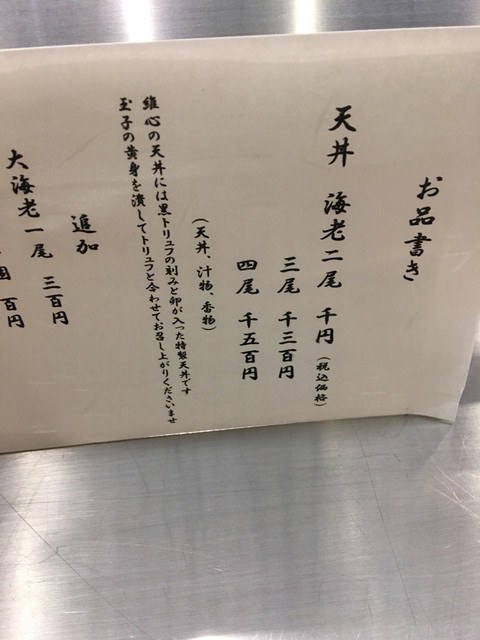 お品書き
天丼 海老二尾 千円(税込価格)
三尾 千三百円
四尾 千五百円
(天丼、汁物、香物)
維心の天丼には黒トリュフの刻みと卵が入った特製天丼です
玉子の黄身を潰してトリュフと合わせてお召し上がりくださいませ
追加
大海老一尾 三百円
百円